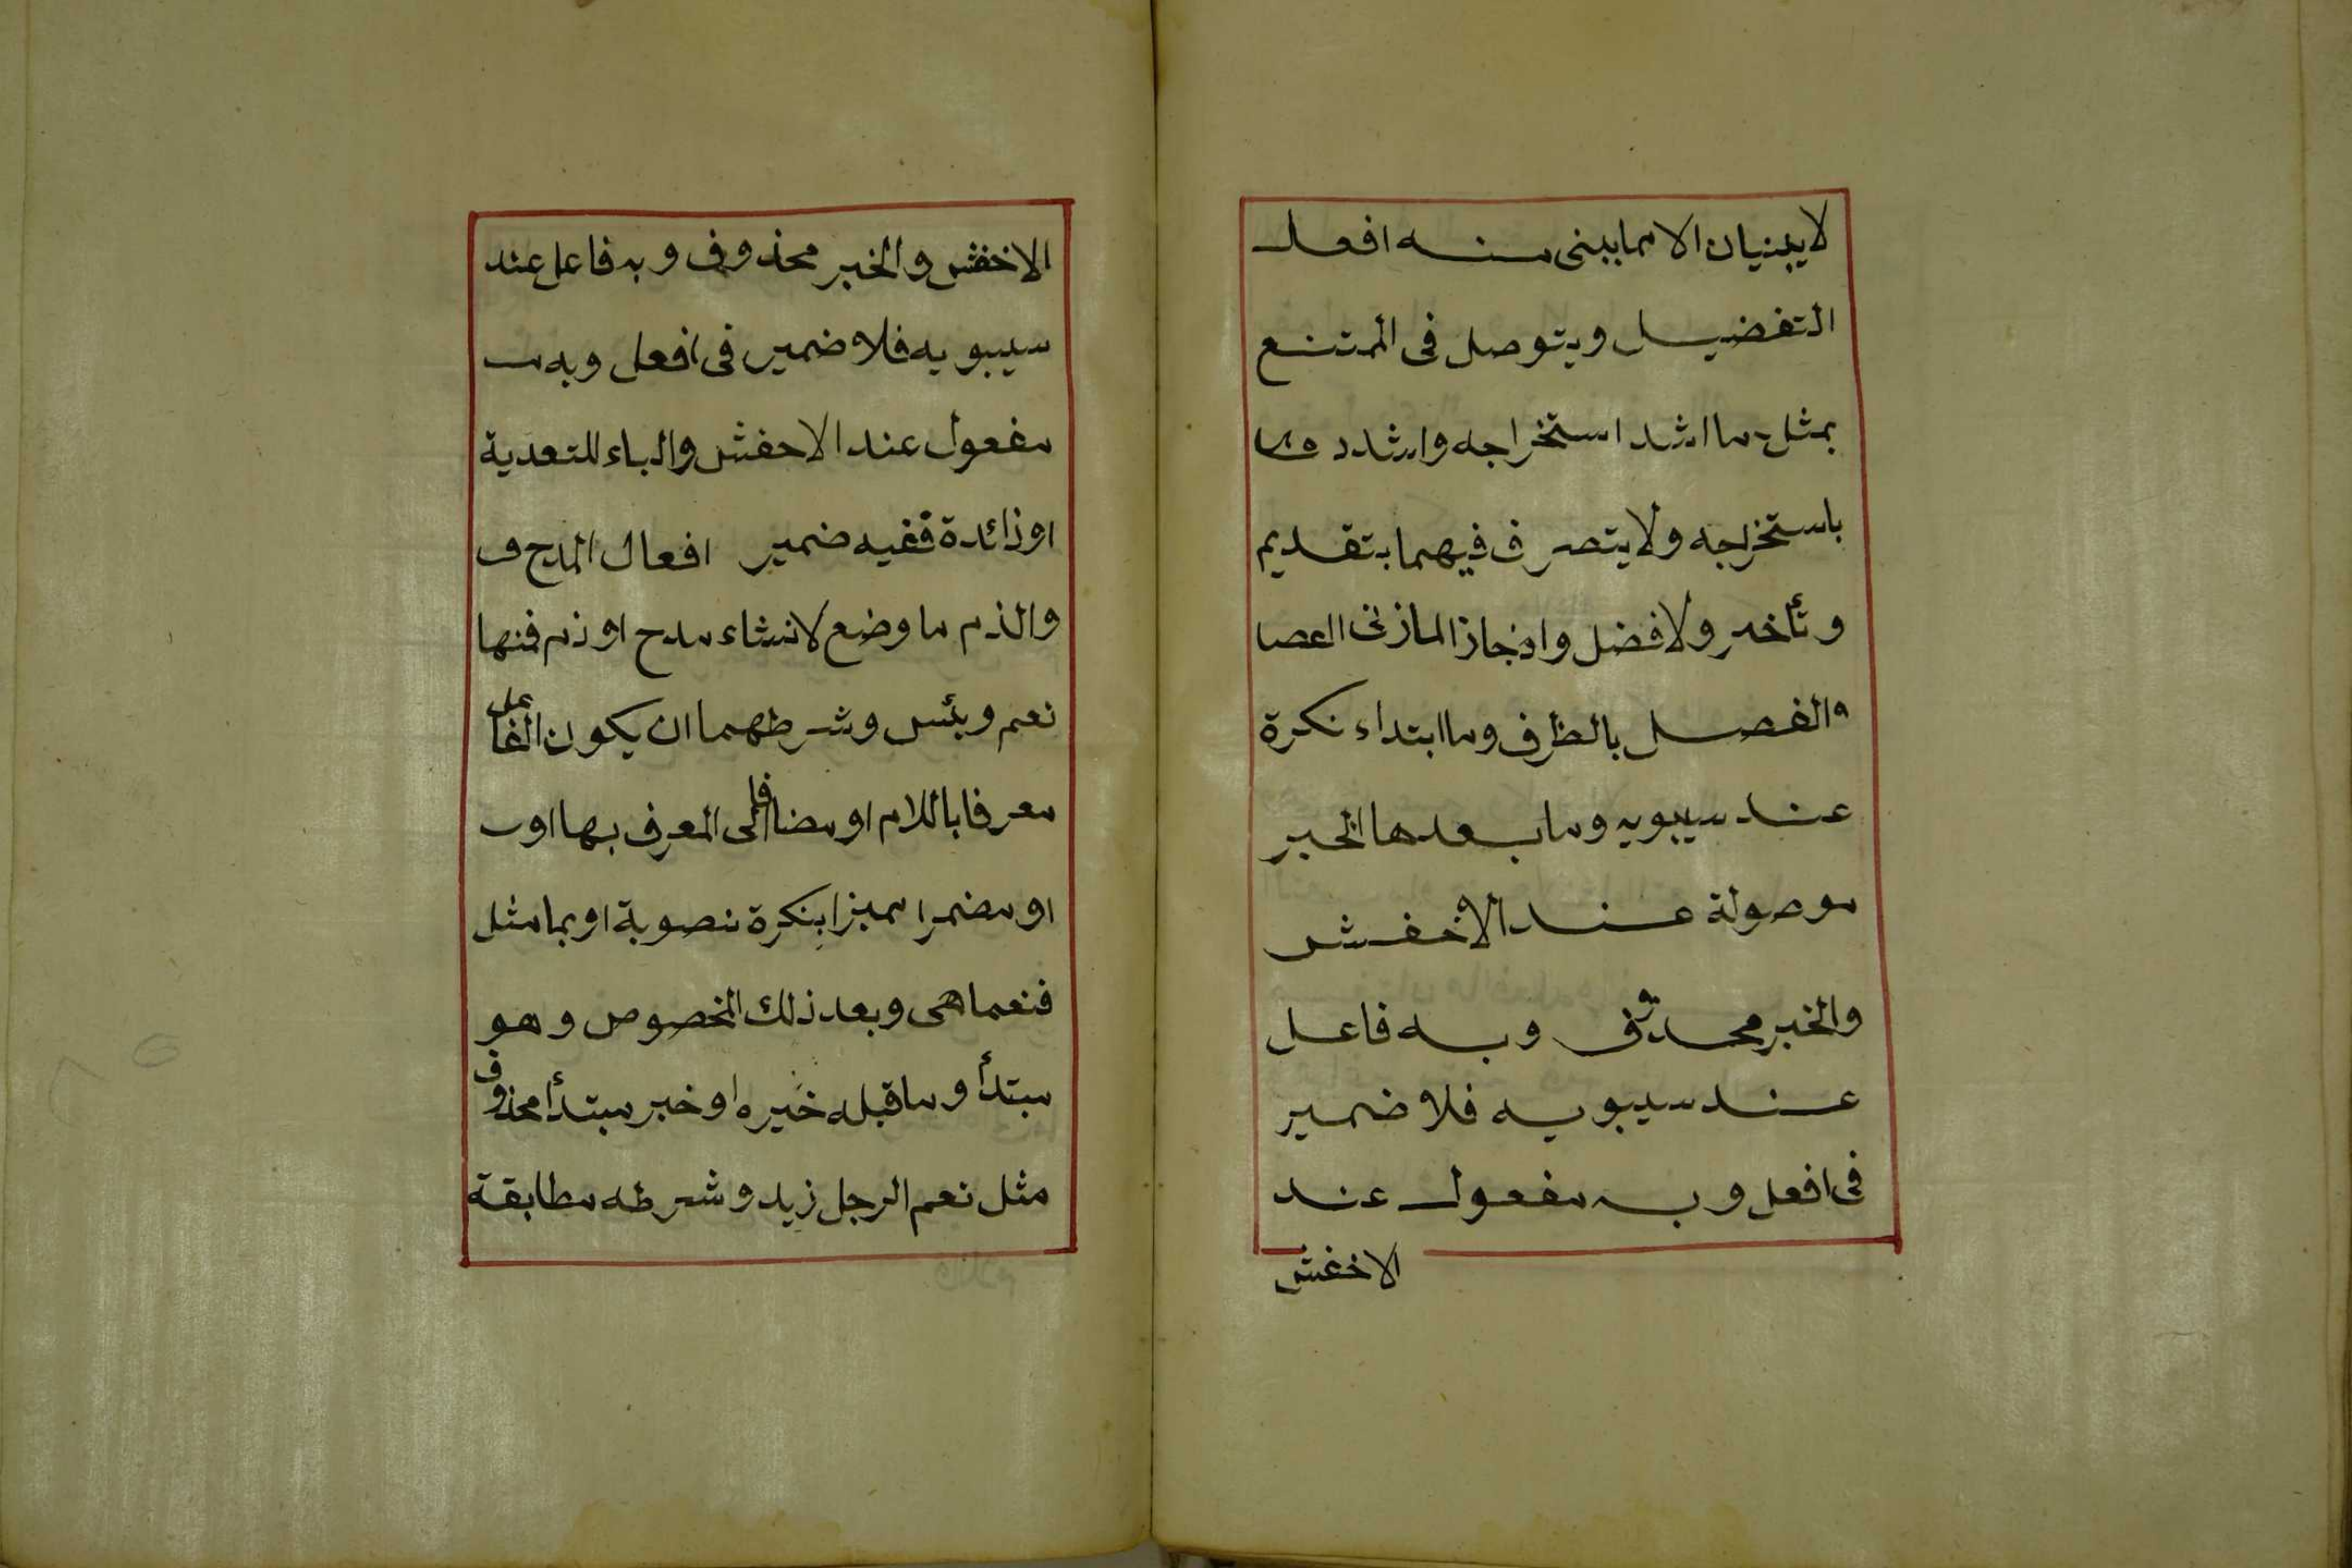 لا يبنيان الا مما يبنى منه افعل
التفضيل ويتوصل فى الممتنع
بمثل ما اشد استخراجه واشدد
باستخرجه ولا يتصرف فيهما بتقديم
وتأخير ولا فضل المازنى
والفصل بالظرف وما ابتداء نكرة
عند سيبويه وما بعدها الخبر
موصولة عند الاخفش
والخبر محذوف وبه فاعل
عند سيبويه فلا ضمير
فى افعل وبه مفعول عند
الاخفش
الاخفش والخبر محذوف وبه فاعل عند
سيبويه فلا ضمير فى افعل وبه
مفعول عند الاحفش والباء للتعدية
او زائدة ففيه ضمير افعال المدح
والذم ما وضع لانشاء مدح او ذم فمنها
نعم وبئس وشرطهما ان يكون الفاعل
معرفا باللام او مضافا الى المعرف بها او
او مضمرا مميزا بنكرة نصوبة او بما مثل
فنعما هى وبعد ذلك المخصوص وهو
مبتدأ وما قبله خبره او خبر مبتدأ محذوف
مثل نعم الرجل زيد وشرطه مطابقة